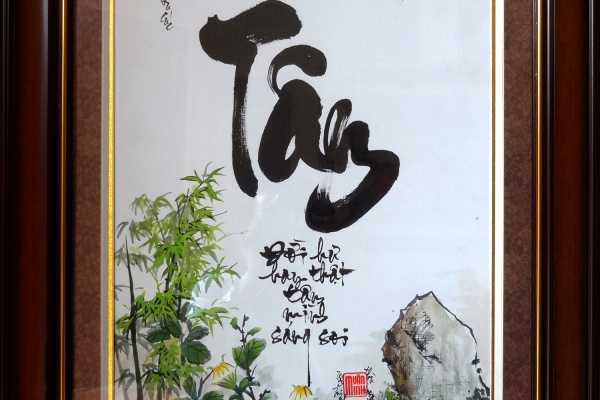 Tâm
Đời hư
hay thật
tâm
mình
sáng soi
MINH